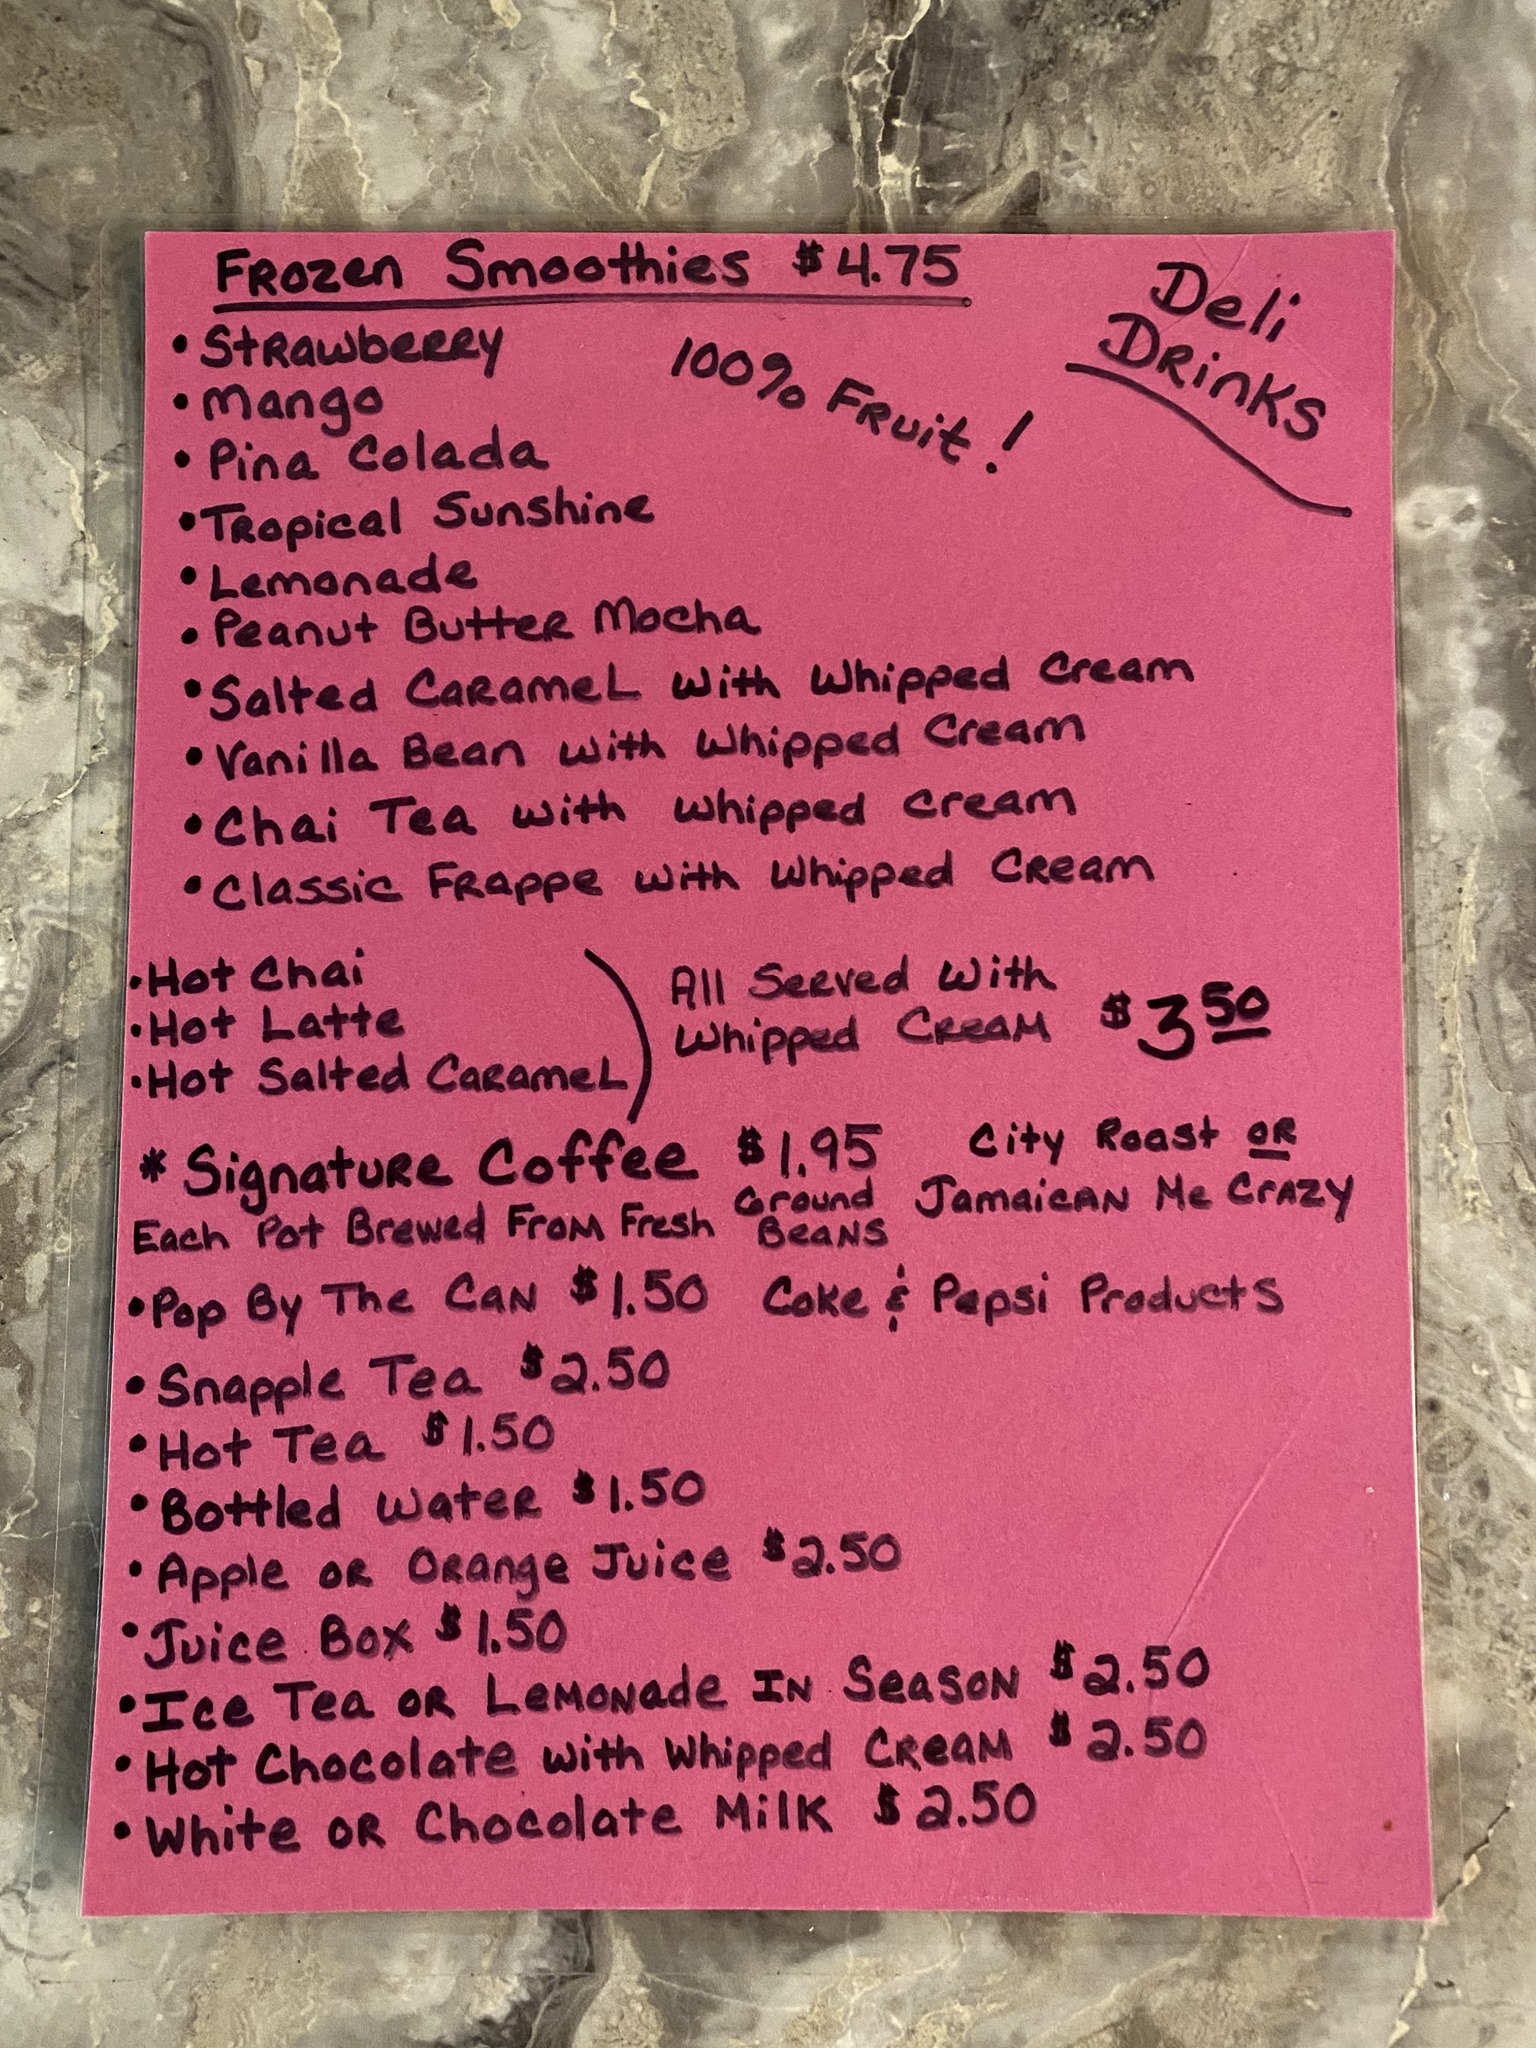 Frozen Smoothies $4.75
Deli
Drinks
• Strawberry
100% Fruit!
• Mango
• Pina Colada
• Tropical Sunshine
• Lemonade
• Peanut Butter Mocha
• Salted Caramel with Whipped Cream
• Vanilla Bean with Whipped Cream
• Chai Tea with Whipped Cream
• Classic Frappe with Whipped Cream
• Hot Chai
• Hot Latte
• Hot Salted Caramel
All Served With
Whipped Cream $3.50
* Signature Coffee $1.95 City Roast or
Jamaican Me Crazy
Each Pot Brewed From Fresh Ground
Beans
• Pop By The Can $1.50 Coke & Pepsi Products
• Snapple Tea $2.50
• Hot Tea $1.50
• Bottled Water $1.50
• Apple or Orange Juice $2.50
• Juice Box $1.50
• Ice Tea or Lemonade In Season $2.50
• Hot Chocolate with Whipped Cream $2.50
• White or Chocolate Milk $2.50